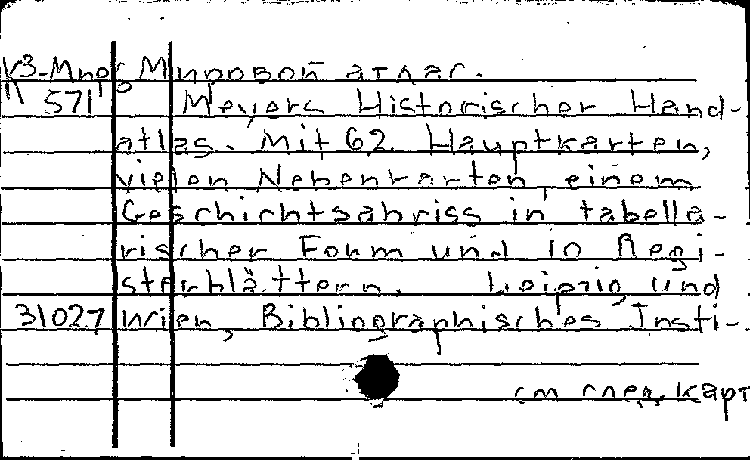 К3-Миро Мировой атлас.
571 Meyers Historischer Hand-
atlas. Mit 62 Hauptkarten,
vielen Nebenkarten, einem
Geschichtsabriss in tabella-
rischer Form und 10 Regi-
sterblättern. Leipzig und
31027 Wien, Bibliographisches Insti-
см след. карт